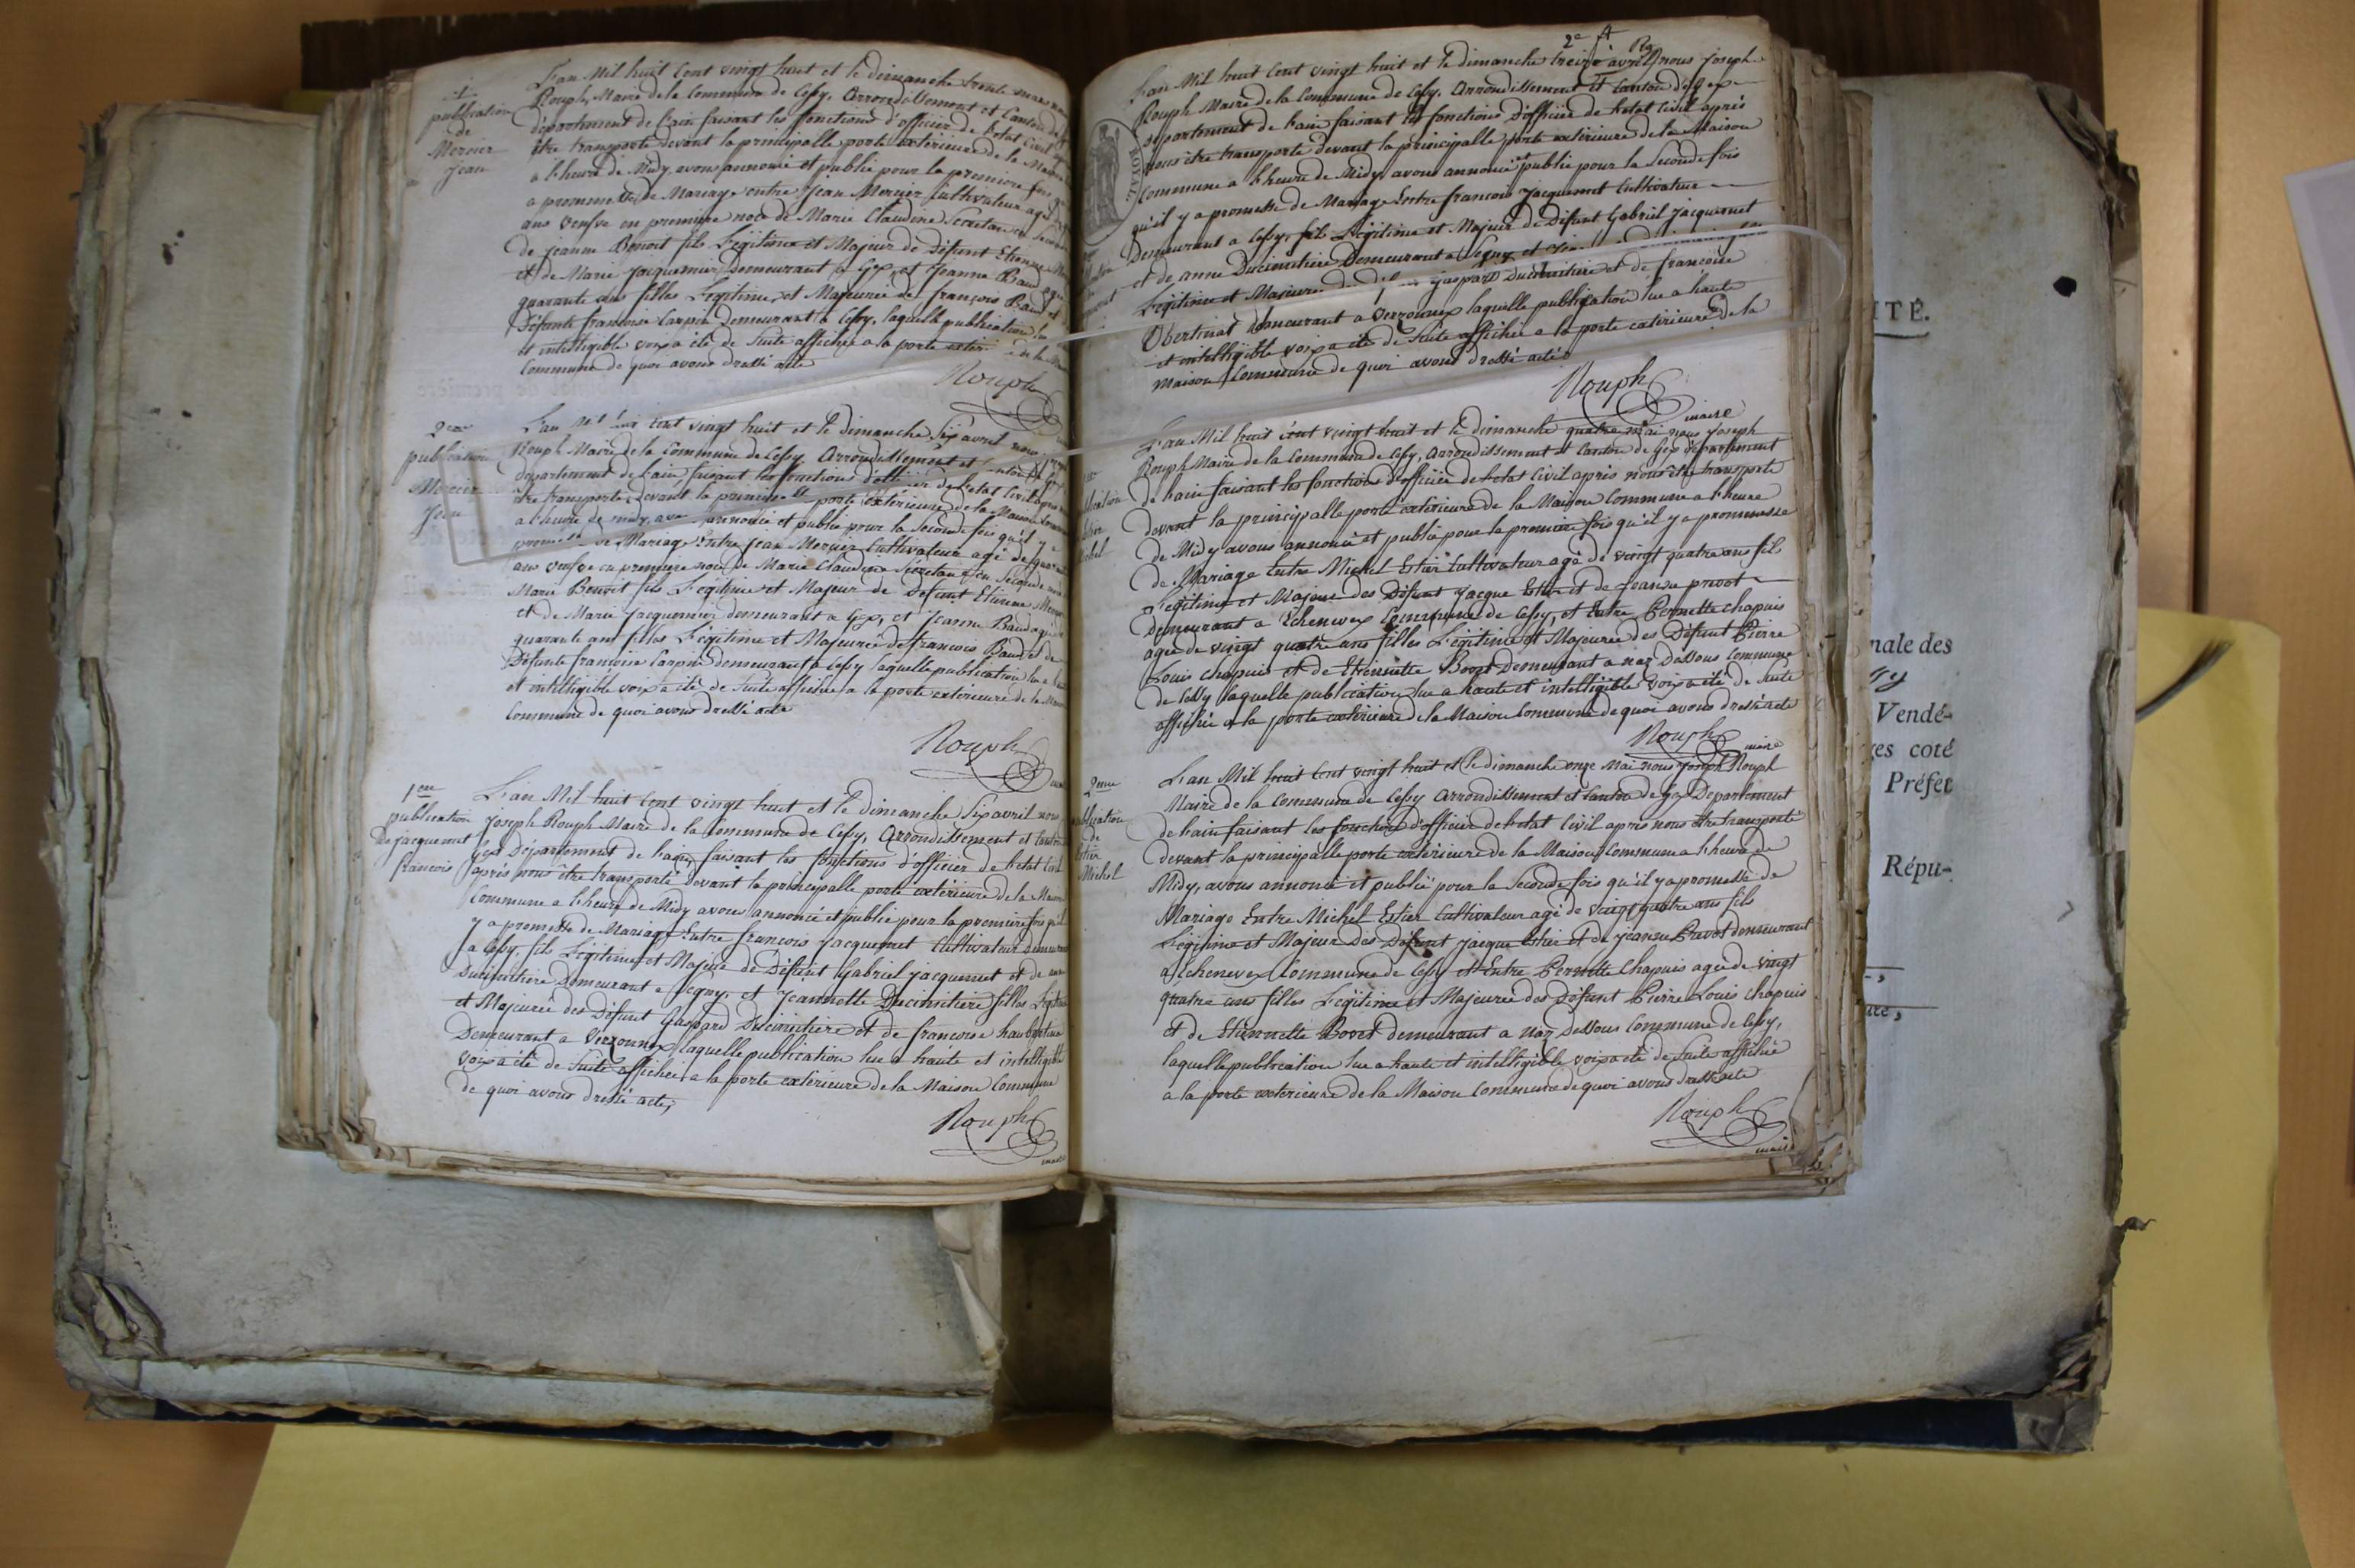 L'an Mil huit Cent vingt huit et le dimanche trente mars
Rouph Maire de la Commune de Cessy, Arrondissement et Canton de
département de l'ain faisant les fonctions d'officier de l'etat Civil
être transporté devant la principalle porte extérieure de la Maison
a l'heure de Midy, avons annoncé et publié pour la premiere fois
a promesse de Mariage entre Jean Mercier Cultivateur agé
ans veufve en premiere noce de Marie Claudine Secretan en Seconde
de Jeanne Benoit fils Légitime et Majeur de Défunt Etienne
et de Marie Jacquemier Demeurant a Gex, et Jeanne Baud agée
quarante ans filles Légitime et Majeurée de françois Baud et
Défunte francoise Carpin Demeurant a Cessy, laquelle publication lue
et intelligible voix a été de Suite affichée a la porte
Commune de quoi avons dressé acte
Rouph
1
publication
de
Mercier
Jean
L'an Mil huit Cent vingt huit et le dimanche Six avril nous
Rouph Maire de la Commune de Cessy, Arrondissement et
département de l'ain, faisant les fonctions d'officier de l'etat Civil après
être transporté devant la principalle porte extérieure de la Maison
a l'heure de midy, avons annoncé et publié pour la Seconde fois qu'il y
promesse de Mariage Entre Jean Mercier Cultivateur agé de
ans veufve en premiere noce de Marie Claudine Secretan en Seconde
Marie Benoit fils Légitime et Majeur de Défunt Etienne
et de Marie Jacquemier demeurant a Gex, et Jeanne Baud agée
quarante ans filles Légitime et Majeurée de francois Baud et de
Défunte francoise Carpin demeurant a Cessy laquelle publication lue a
et intelligible voix a été de Suite affichée a la porte extérieure de la
Commune de quoi avons dressé acte
Rouph
2eme
publication
Mercier
Jean
L'an Mil huit Cent vingt huit et le Dimanche Six avril nous
Joseph Rouph Maire de la Commune de Cessy, Arrondissement et Canton
Gex Département de l'ain, faisant les fonctions d'officier de l'etat Civil
après nous être transporté devant la principalle porte extérieure de la Maison
Commune a l'heure de Midy avons annoncé et publié pour la premiere fois qu'il
y a promesse de Mariage Entre francois Jacquemet Cultivateur demeurant
a Cessy, fils Légitime et Majeur de Défunt Gabriel Jacquemet et de
Ducimitiere Demeurant a Segny, et Jeannette Ducimitiere filles
et Majeurée des Défunt Gaspard Ducimitiere et de francoise
Demeurant a Verzonnex laquelle publication lue a haute et intelligible
voix a été de Suite affichée a la porte extérieure de la Maison Commune
de quoi avons dressé acte,
Rouph
maire
1ere
publication
De jacquemet
francois
2e A
L'an Mil huit Cent vingt huit et le dimanche treize avril nous Joseph
Rouph Maire de la Commune de Cessy, Arrondissement et Canton de Gex
département de l'ain faisant les fonctions d'officier de l'etat Civil après
nous être transporté devant la principalle porte extérieure de la Maison
Commune a l'heure de Midy avons annoncé et publié pour la Seconde fois
qu'il y a promesse de Mariage Entre francois Jacquemet Cultivateur
Demeurant a Cessy, fils Légitime et Majeur de Défunt Gabriel Jacquemet
et de anne Ducimitiere Demeurant a Segny et
Légitime et Majeurée gaspard Ducimitiere et de francoise
Obertinat demeurant a Verzonnex laquelle publication lue a haute
et intelligible voix a été de Suite affichée a la porte extérieure de la
Maison Commune de quoi avons dressé acte
Rouph
maire
ROYAL
L'an Mil huit Cent vingt huit et le dimanche quatre mai nous Joseph
Rouph Maire de la Commune de Cessy, Arrondissement et Canton de Gex département
de l'ain faisant les fonctions d'officier de l'etat Civil après nous être transporté
devant la principalle porte extérieure de la Maison Commune a l'heure
de Midy avons annoncé et publié pour la premiere fois qu'il y a promesse
de Mariage Entre Michel Estier Cultivateur agé de vingt quatre ans fils
Légitime et Majeur des Défunt Jacque Estier et de Jeanne prevot
Demeurant a Echenevex Commune de Cessy, et Entre Pernette Chapuis
agée de vingt quatre ans filles Légitime et Majeurée des Défunt Pierre
Louis Chapuis et de Etiennette Bovet Demeurant a naz Dessous Commune
de Cessy laquelle publication lue a haute et intelligible voix a été de Suite
affichée a la porte extérieure de la Maison Commune de quoi avons dressé acte
Rouph
maire
L'an Mil huit Cent vingt huit et le dimanche onze Mai nous Joseph Rouph
Maire de la Commune de Cessy Arrondissement et Canton de Gex Département
de l'ain faisant les fonctions d'officier de l'etat Civil après nous être transporté
devant la principalle porte extérieure de la Maison Commune a l'heure de
Midy, avons annoncé et publié pour la Seconde fois qu'il y a promesse de
Mariage Entre Michel Estier Cultivateur agé de vingt quatre ans fils
Légitime et Majeur Des Défunt Jacque Estier et de Jeanne Prevot demeurant
a Echenevex Commune de Cessy et Entre Pernette Chapuis agée de vingt
quatre ans filles Légitime et Majeurée des Défunt Pierre Louis Chapuis
et de Etiennette Bovet demeurant a naz Dessous Commune de Cessy,
laquelle publication lue a haute et intelligible voix a été de Suite affichée
a la porte extérieure de la Maison Commune de quoi avons dressé acte
Rouph
maire
2eme
publication
de
Estier
Michel
ITÉ.
nale des
Vendé-
es coté
Préfet
Répu-